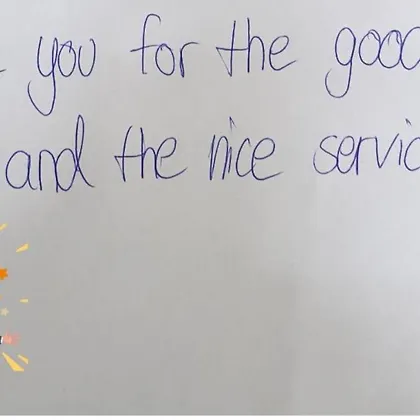 you for the good
and the nice servic